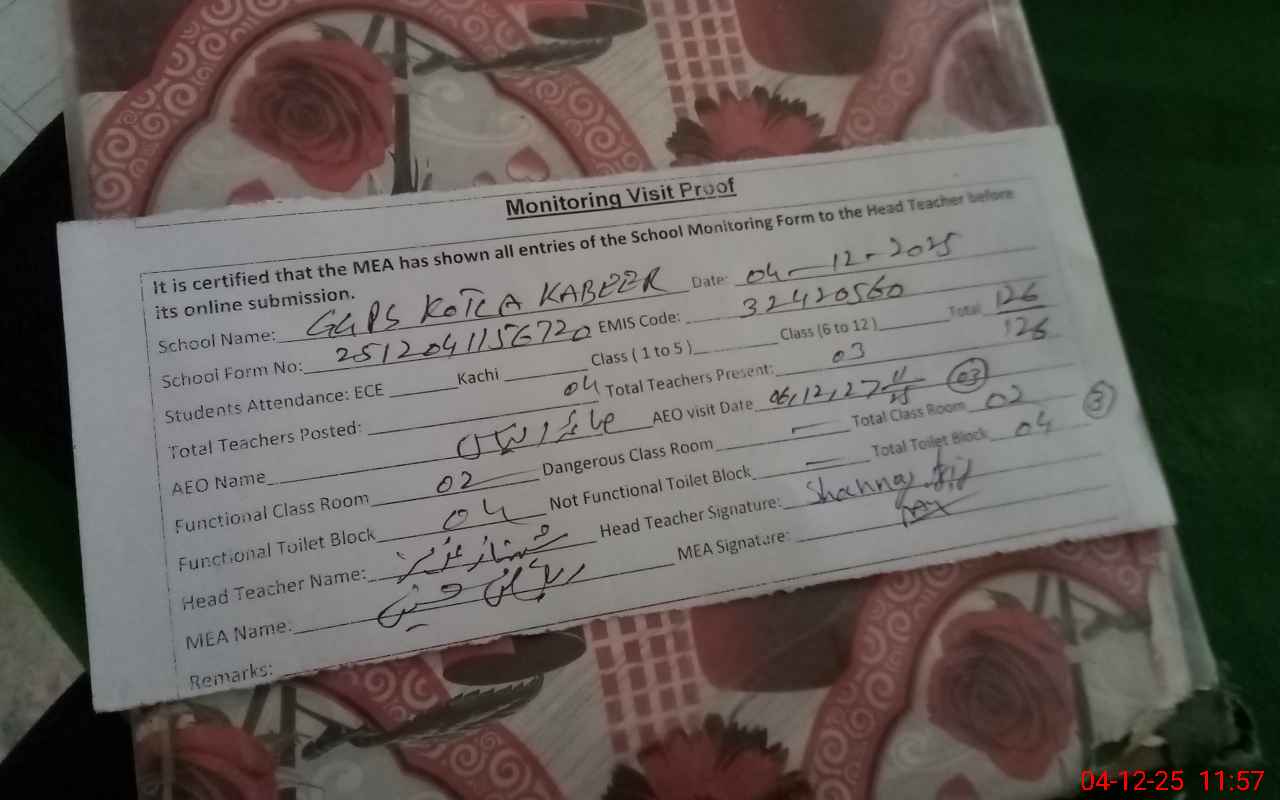 Monitoring Visit Proof
It is certified that the MEA has shown all entries of the School Monitoring Form to the Head Teacher before
its online submission.
School Name: GGPS KOTLA KABEER Date: 04-12-2025
School Form No: 2512041156720 EMIS Code: 32420560
Students Attendance: ECE Kachi Class ( 1 to 5 ) Class (6 to 12 ) Total 126
126
Total Teachers Posted: 04 Total Teachers Present: 03
AEO Name AEO visit Date 06,12,27 11/25 03
Functional Class Room 02 Dangerous Class Room — Total Class Room 02
Functional Toilet Block 04 Not Functional Toilet Block — Total Toilet Block 04 3
Head Teacher Name: شہناز عزیز Head Teacher Signature: Shahnaz
MEA Name: حسین MEA Signature:
Remarks:
04-12-25 11:57